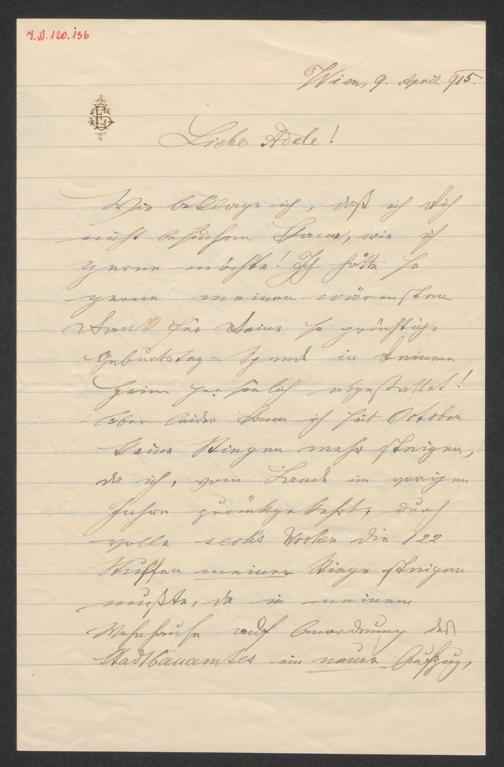 I.N. 120.136
Wien, 9. April 915.
Liebe Adele!
Wie beklage ich, daß ich Dich
nicht besuchen kann, wie ich
gerne möchte! Ich hätte so
gerne meinen wärmsten
Dank für Deine so prächtige
Geburtstag=Spende in Deinem
Heim persönlich abgestattet!
Aber leider kann ich seit October
keine Stiegen mehr steigen,
da ich, vom Lande im vorigen
Jahre zurückgekehrt, durch
volle sechs Wochen die 122
Stuffen meiner Stiege steigen
mußte, da in meinem
Wohnhause auf Anordnung des
Stadtbauamtes ein neuer Aufzug,